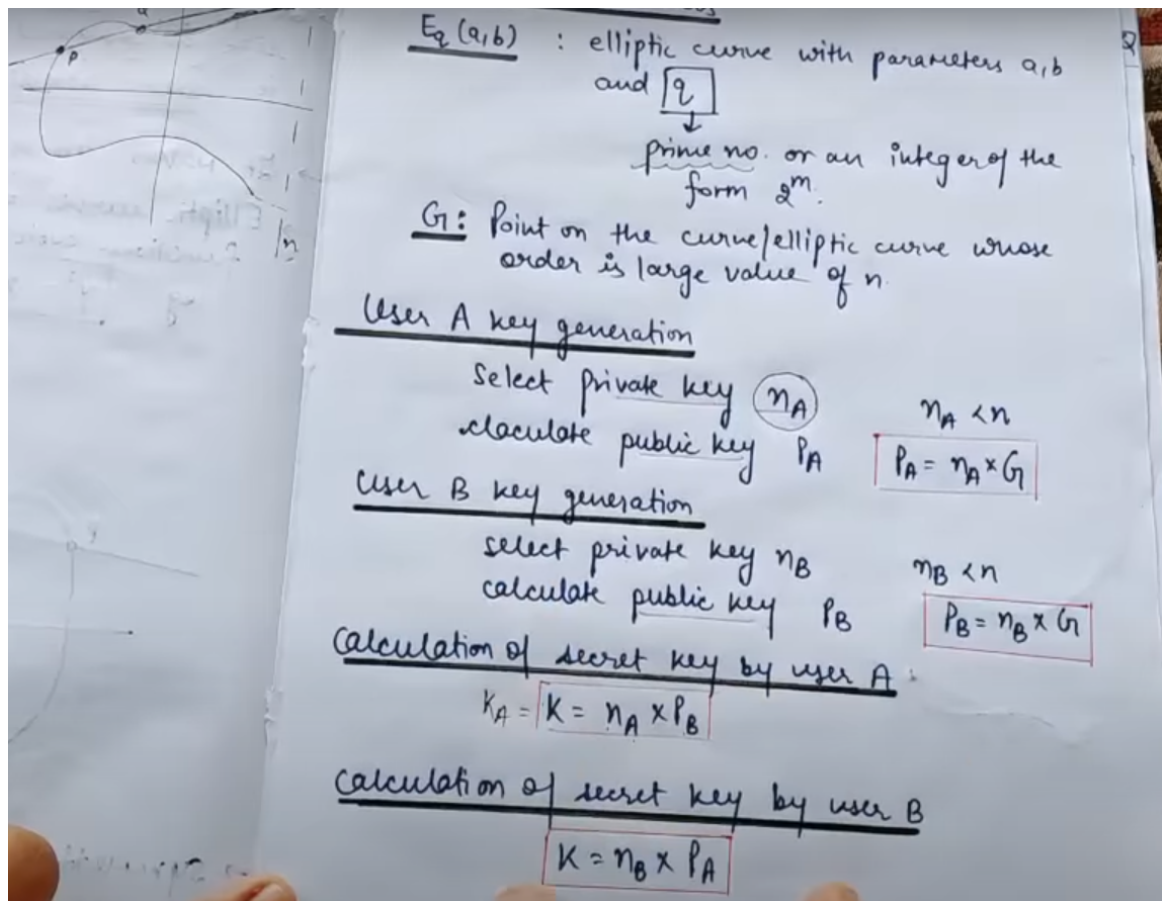 Eq (a,b) : elliptic curve with parameters a,b
and q
prime no. or an integer of the
form 2^m.
G: Point on the curve/elliptic curve whose
order is large value of n
User A key generation
Select private key nA nA < n
claculate public key PA PA = nA × G
User B key generation
select private key nB nB < n
calculate public key PB PB = nB × G
Calculation of secret key by user A :
KA = K = nA × PB
Calculation of secret key by user B
K = nB × PA
P
Q